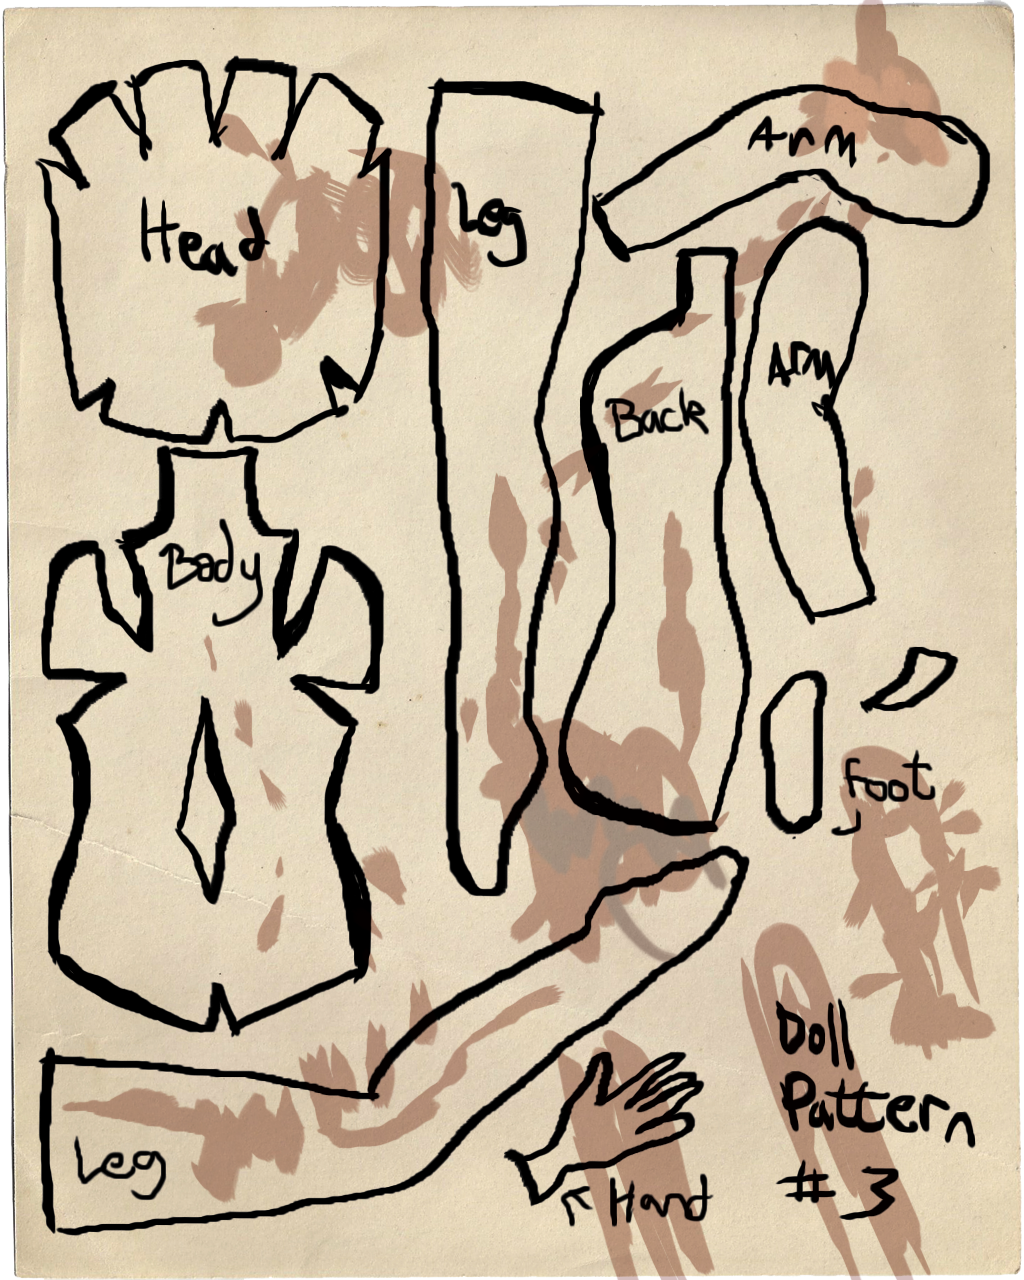 Head
Leg
Arm
Arm
Back
Body
foot
Leg
Hand
Doll
Pattern
# 3